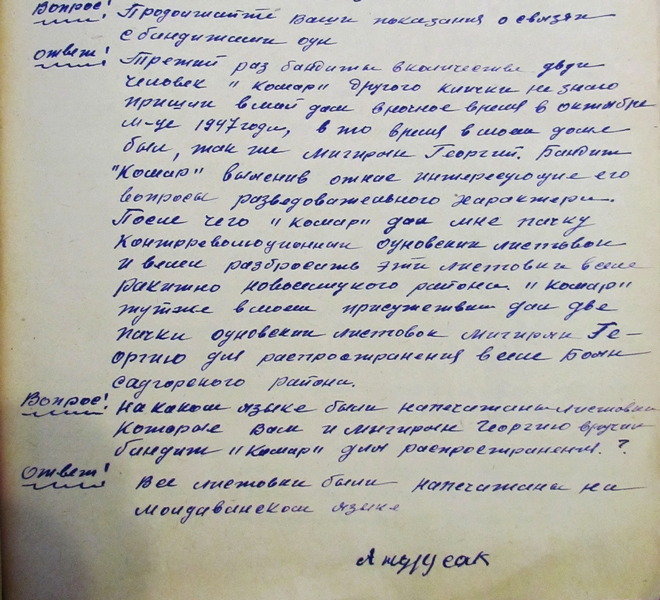 Вопрос! Продолжайте Ваши показания о связях
с бандитами оун
Ответ! Третий раз бандиты в количестве двух
человек "Комар" другого клички не знаю
пришли в мой дом в ночное время в октябре
м-це 1947 года, в то время в моем доме
был, так же Мигирян Георгий. Бандит
"Комар" выяснив от нас интересующие его
вопросы разведовательного характера.
После чего "Комар" дал мне пачку
Контрреволюционных оуновских листовок
и велел разбросать эти листовки в селе
Ракитно новоселицкого района. "Комар"
тут же в моем присутствии дал две
пачки оуновских листовок Мигирян Ге-
оргию для распространения в селе Боян
садгорского района.
Вопрос! На каком языке были напечатаны листовки
которые Вам и Мигирян Георгию вручал
бандит "Комар" для распространения. ?
Ответ! Все листовки были напечатаны на
Молдаванском языке